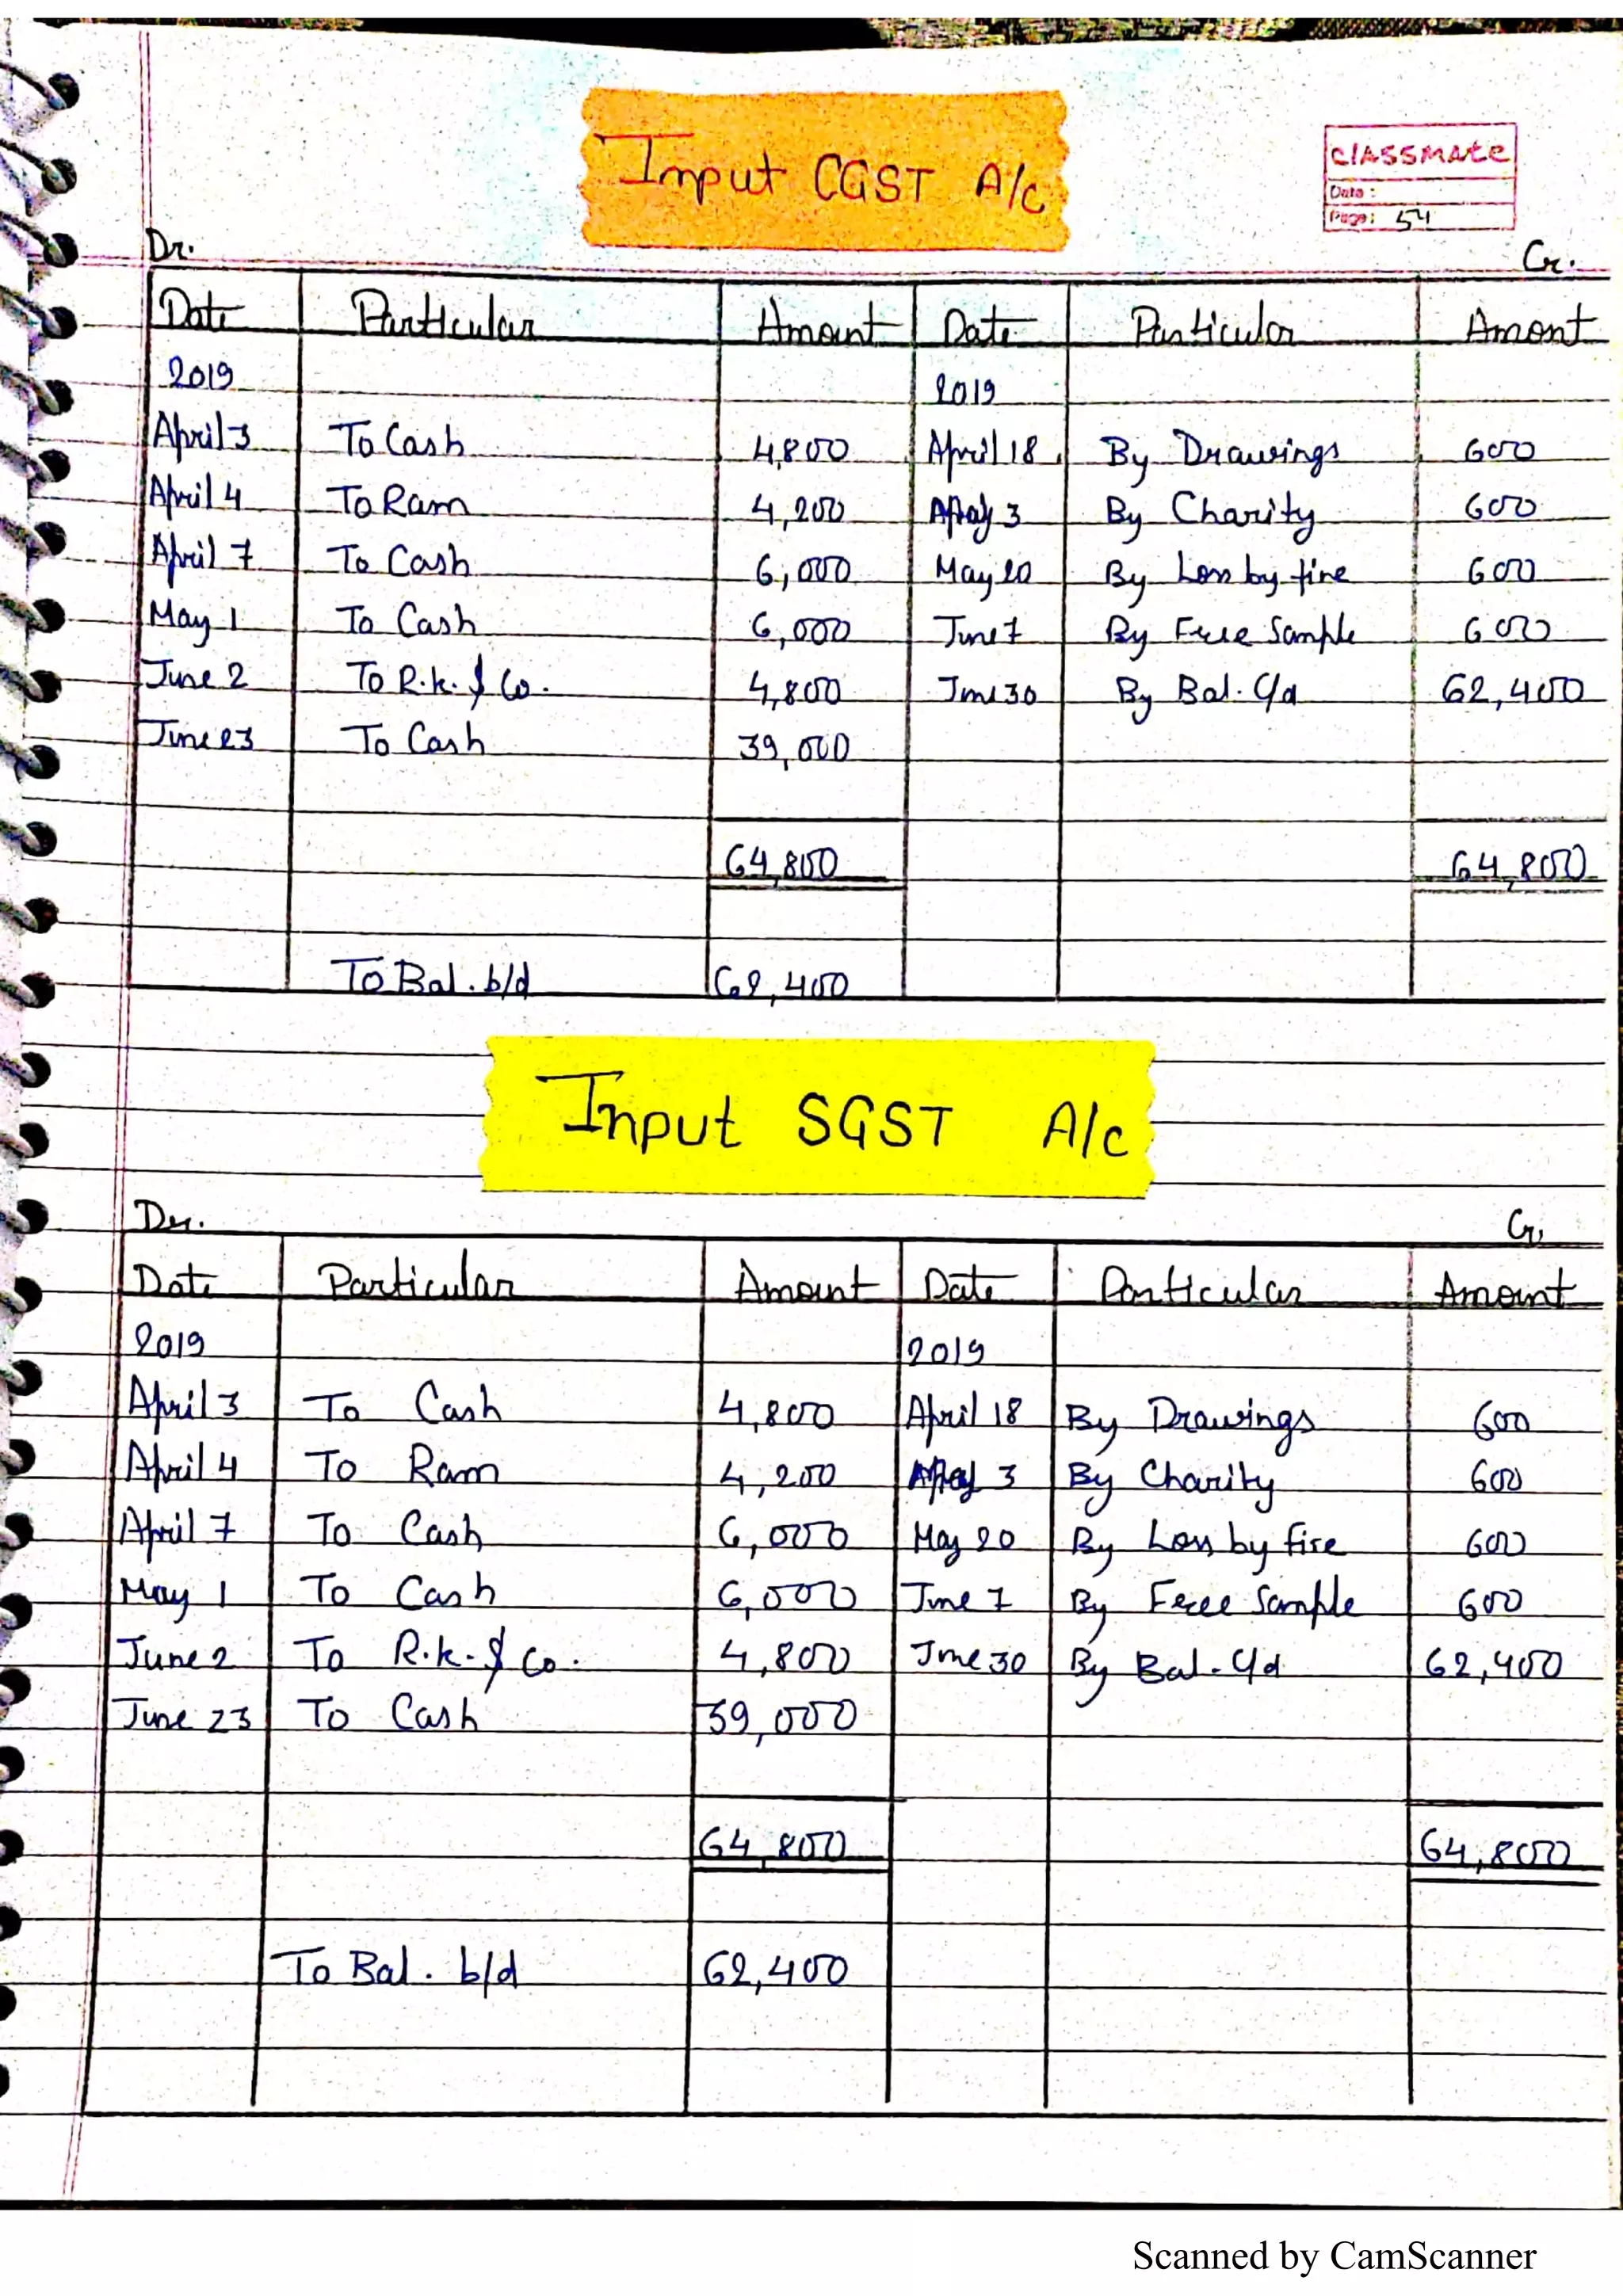 Input CGST A/c
classmate
Date :
Page: 54
Dr. Cr.
Date Particular Amount Date Particular Amont
2019 2019
April 3 To Cash 4,800 April 18 By Drawings 600
April 4 To Ram 4,200 May 3 By Charity 600
April 7 To Cash 6,000 May 20 By Loss by fire 600
May 1 To Cash 6,000 June 7 By Free Sample 600
June 2 To R.k. & Co. 4,800 June 30 By Bal. C/d 62,400
June 23 To Cash 39,000
64,800 64,800
To Bal. b/d 62,400
Input SGST A/c
Dr. Cr.
Date Particular Amount Date Particular Amount
2019 2019
April 3 To Cash 4,800 April 18 By Drawings 600
April 4 To Ram 4,200 May 3 By Charity 600
April 7 To Cash 6,000 May 20 By Loss by fire 600
May 1 To Cash 6,000 June 7 By Free Sample 600
June 2 To R.k. & Co. 4,800 June 30 By Bal. C/d 62,400
June 23 To Cash 39,000
64,800 64,800
To Bal. b/d 62,400
Scanned by CamScanner